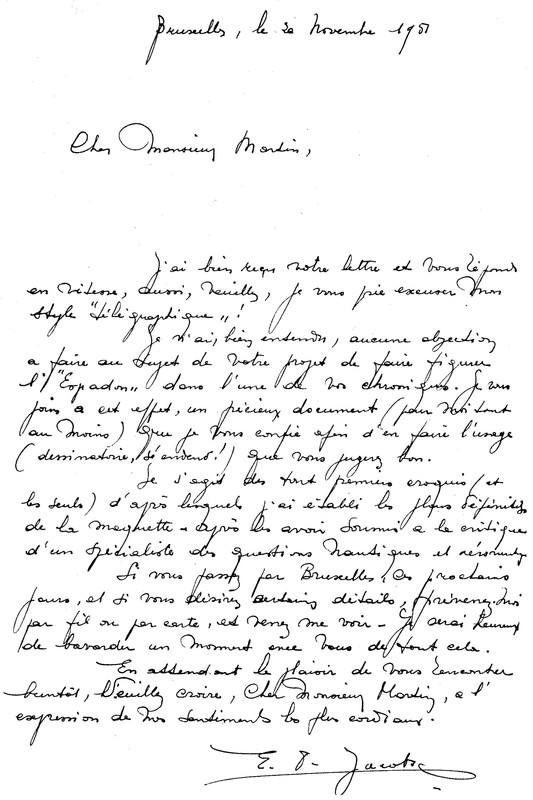 Bruxelles, le 20 Novembre 1951
Cher Monsieur Martin,
J'ai bien reçu votre lettre et vous réponds
en vitesse, aussi, veuillez, je vous prie excuser mon
style "télégraphique"!
Je n'ai, bien entendu, aucune objection
a faire au sujet de votre projet de faire figurer
l'"Espadon" dans l'une de vos chroniques. Je vous
joins a cet effet, un précieux document (pour moi tout
au moins) que je vous confie afin d'en faire l'usage
(dessinatoire, s'entend!) que vous jugerez bon.
Il s'agit des tout premiers croquis (et
les seuls) d'après lesquels j'ai établi les plans définitifs
de la maquette - après les avoir soumis a la critique
d'un spécialiste des questions nautiques et
Si vous passez par Bruxelles, ces prochains
jours, et si vous désirez certains détails, prévenez-moi
par fil ou par carte, et venez me voir - Je serai heureux
de bavarder un moment avec vous de tout cela.
En attendant le plaisir de vous rencontrer
bientôt, veuillez croire, Cher Monsieur Martin, a l'
expression de mes sentiments les plus cordiaux.
E. P. Jacobs